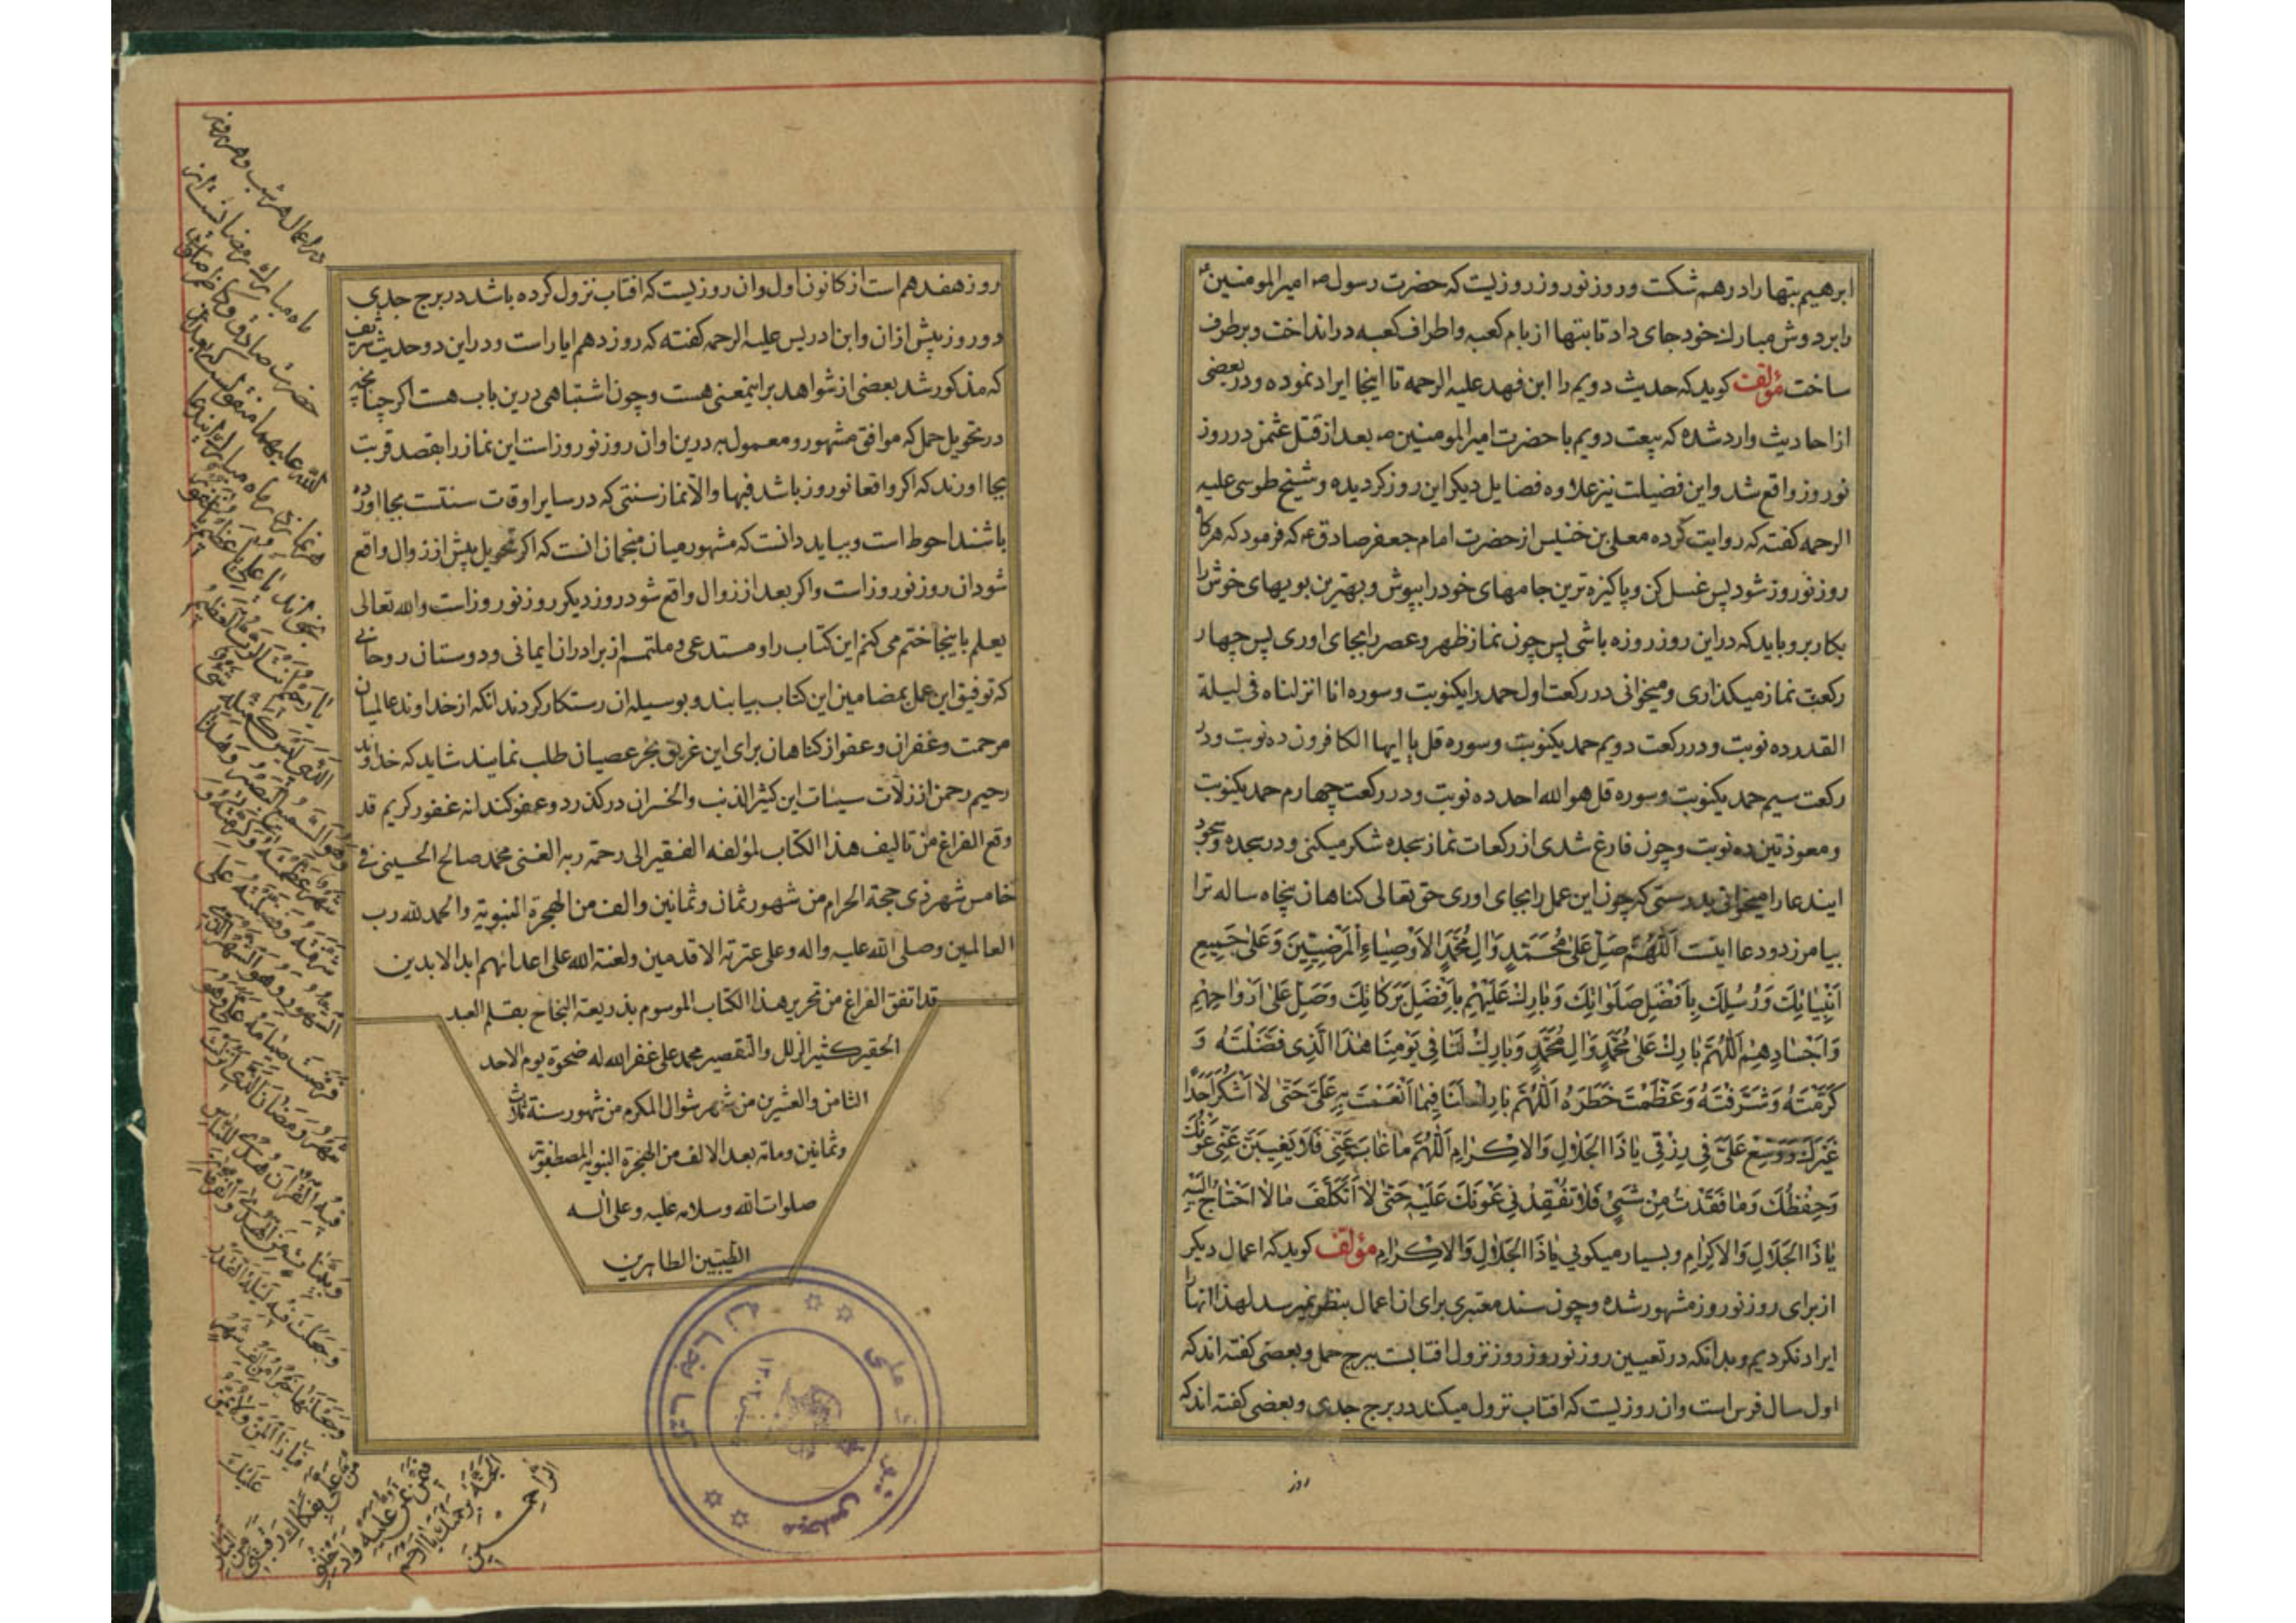 ابرهیم بتها را درهم شکت و روز نوروز روزیست که حضرت رسول ص امیرالمومنین ع
را بر دوش مبارك خود جای داد تا بتها از بام کعبه و اطراف کعبه در انداخت و برطرف
ساخت مؤلف کوید که حدیث دویم را ابن فهد علیه الرحمه تا اینجا ایراد نموده و در بعضی
از احادیث وارد شده که بیعت دویم با حضرت امیرالمومنین ع بعد از قتل عثمن در روز
نوروز واقع شد و این فضیلت نیز علاوه فضایل دیکر این روز کردیده و شیخ طوسی علیه
الرحمه کفته که روایت کرده معلی بن خنیس از حضرت امام جعفر صادق ع که فرمود که هرکاه
روز نوروز شود پس غسل کن و پاکیزه ترین جامهای خود را بپوش و بهترین بویهای خوش را
بکار بر و باید که در این روز روزه باشی پس چون نماز ظهر و عصر را بجای اوری پس چهار
رکعت نماز میکذاری و میخوانی در رکعت اول حمد را یکنوبت و سوره انا انزلناه فی لیلة
القدر ده نوبت و در رکعت دویم حمد یکنوبت و سوره قل یا ایها الکافرون ده نوبت و در
رکعت سیم حمد یکنوبت و سوره قل هو الله احد ده نوبت و در رکعت چهارم حمد یکنوبت
و معوذتین ده نوبت و چون فارغ شدی از رکعات نماز سجده شکر میکنی و در سجده
ایندعا را میخوانی بدرستی که چون این عمل را بجای اوری حق تعالی کناهان پنجاه ساله ترا
بیامرزد و دعا اینست اَللّهُمَّ صَلِّ عَلی مُحَمَّدٍ وَالِ مُحَمَّدٍ الاَوْصِیاءِ الْمَرْضِیّینَ وَعَلی جَمیعِ
اَنْبِیائِكَ وَرُسُلِكَ بِاَفْضَلِ صَلَواتِكَ وَبارِكْ عَلَیْهِمْ بِاَفْضَلِ بَرَکاتِكَ وَصَلِّ عَلی اَرْواحِهِمْ
وَاَجْسادِهِمْ اَللّهُمَّ بارِكْ عَلی مُحَمَّدٍ وَالِ مُحَمَّدٍ وَبارِكْ لَنا فی یَوْمِنا هذَا الَّذی فَضَّلْتَهُ وَ
کَرَّمْتَهُ وَشَرَّفْتَهُ وَعَظَّمْتَ خَطَرَهُ اَللّهُمَّ بارِكْ لَنا فیما اَنْعَمْتَ بِهِ عَلَیَّ حَتّی لا اَشْکُرَ اَحَدًا
غَیْرَكَ وَوَسِّعْ عَلَیَّ فی رِزْقی یا ذَا الْجَلالِ وَالاِکْرامِ اَللّهُمَّ ما غابَ عَنّی فَلا یَغیبَنَّ عَنّی عَوْنُكَ
وَحِفْظُكَ وَما فَقَدْتُ مِنْ شَیْءٍ فَلا تُفْقِدْنی عَوْنَكَ عَلَیْهِ حَتّی لا اَتَکَلَّفَ ما لا اَحْتاجُ اِلَیْهِ
یا ذَا الْجَلالِ وَالاِکْرامِ و بسیار میکوئی یا ذَا الْجَلالِ وَالاِکْرامِ مؤلف کوید که اعمال دیکر
از برای روز نوروز مشهور شده و چون سند معتبری برای ان اعمال بنظر نمیرسد لهذا انها را
ایراد نکردیم و بدانکه در تعیین روز نوروز روز نزول افتابست ببرج حمل و بعضی کفته اند که
اول سال فرس است و ان روزیست که افتاب نزول میکند در برج جدی و بعضی کفته اند که
روز
روز هفدهم است از کانون اول و ان روزیست که افتاب نزول کرده باشد در برج جدی
دو روز پیش از ان و ابن ادریس علیه الرحمه کفته که روز دهم ایار است و در این دو حدیث شریف
که مذکور شد بعضی از شواهد بر اینمعنی هست و چون اشتباهی درین باب هست اکر چنانچه
در تحویل حمل که موافق مشهور و معمول به درین اوان روز نوروز است این نماز را بقصد قربت
بجا اورند که اکر واقعا نوروز باشد فبها و الا نماز سنتی که در سایر اوقات سنتست بجا اورده
باشند احوط است و بباید دانست که مشهور میان منجمان انست که اکر تحویل پیش از زوال واقع
شود ان روز نوروز است و اکر بعد از زوال واقع شود روز دیکر روز نوروز است والله تعالی
یعلم باینجا ختم می کنم این کتاب را و مستدعی و ملتمسم از برادران ایمانی و دوستان روحانی
که توفیق این عمل بمضامین این کتاب بیابند و بوسیله ان رستکار کردند انکه از خداوند عالمیان
مرحمت و غفران و عفو از کناهان برای این غریق بحر عصیان طلب نمایند شاید که خداوند
رحیم رحمن از زلات سیئات این کثیر الذنب والخسران درکذرد و عفو کند انه غفور کریم قد
وقع الفراغ من تالیف هذا الکتاب لمؤلفه الفقیر الی رحمة ربه الغنی محمد صالح الحسینی فی
خامس شهر ذی حجة الحرام من شهور ثمان و ثمانین و الف من الهجرة النبویة والحمد لله رب
العالمین وصلی الله علیه واله وعلی عترته الاقدمین ولعنة الله علی اعدائهم ابد الابدین
قد اتفق الفراغ من تحریر هذا الکتاب الموسوم بذریعة النجاح بقلم العبد
الحقیر کثیر الزلل والتقصیر محمد علی غفر الله له ضحوة یوم الاحد
الثامن والعشرین من شهر شوال المکرم من شهور سنة ثلاث
وثمانین ومائة بعد الالف من الهجرة النبویة المصطفویة
صلوات الله وسلامه علیه وعلی اله
الطیبین الطاهرین
در اعمال هر شب و هر روز
ماه مبارك رمضان
حضرت صادق
بخواند یا عَلِیُّ یا عَظیمُ
وَهُوَ السَّمیعُ الْبَصیرُ وَهذا
شَهْرٌ عَظَّمْتَهُ وَکَرَّمْتَهُ وَ
شَرَّفْتَهُ وَفَضَّلْتَهُ عَلَی
الشُّهُورِ وَهُوَ الشَّهْرُ الَّذی
فَرَضْتَ صِیامَهُ عَلَیَّ وَهُوَ
شَهْرُ رَمَضانَ الَّذی اَنْزَلْتَ
فیهِ الْقُرْانَ هُدًی لِلنّاسِ
وَبَیِّناتٍ مِنَ الْهُدی وَالْفُرْقانِ
وَجَعَلْتَ فیهِ لَیْلَةَ الْقَدْرِ
وَجَعَلْتَها خَیْرًا مِنْ اَلْفِ شَهْرٍ
فَیا ذَا الْمَنِّ وَلا یُمَنُّ
عَلَیْكَ
مُنَّ عَلَیَّ بِفَکاكِ رَقَبَتی
الْجَنَّةَ بِرَحْمَتِكَ یا اَرْحَمَ
الرّاحِمینَ
کتابخانه
مجلس شورای ملی